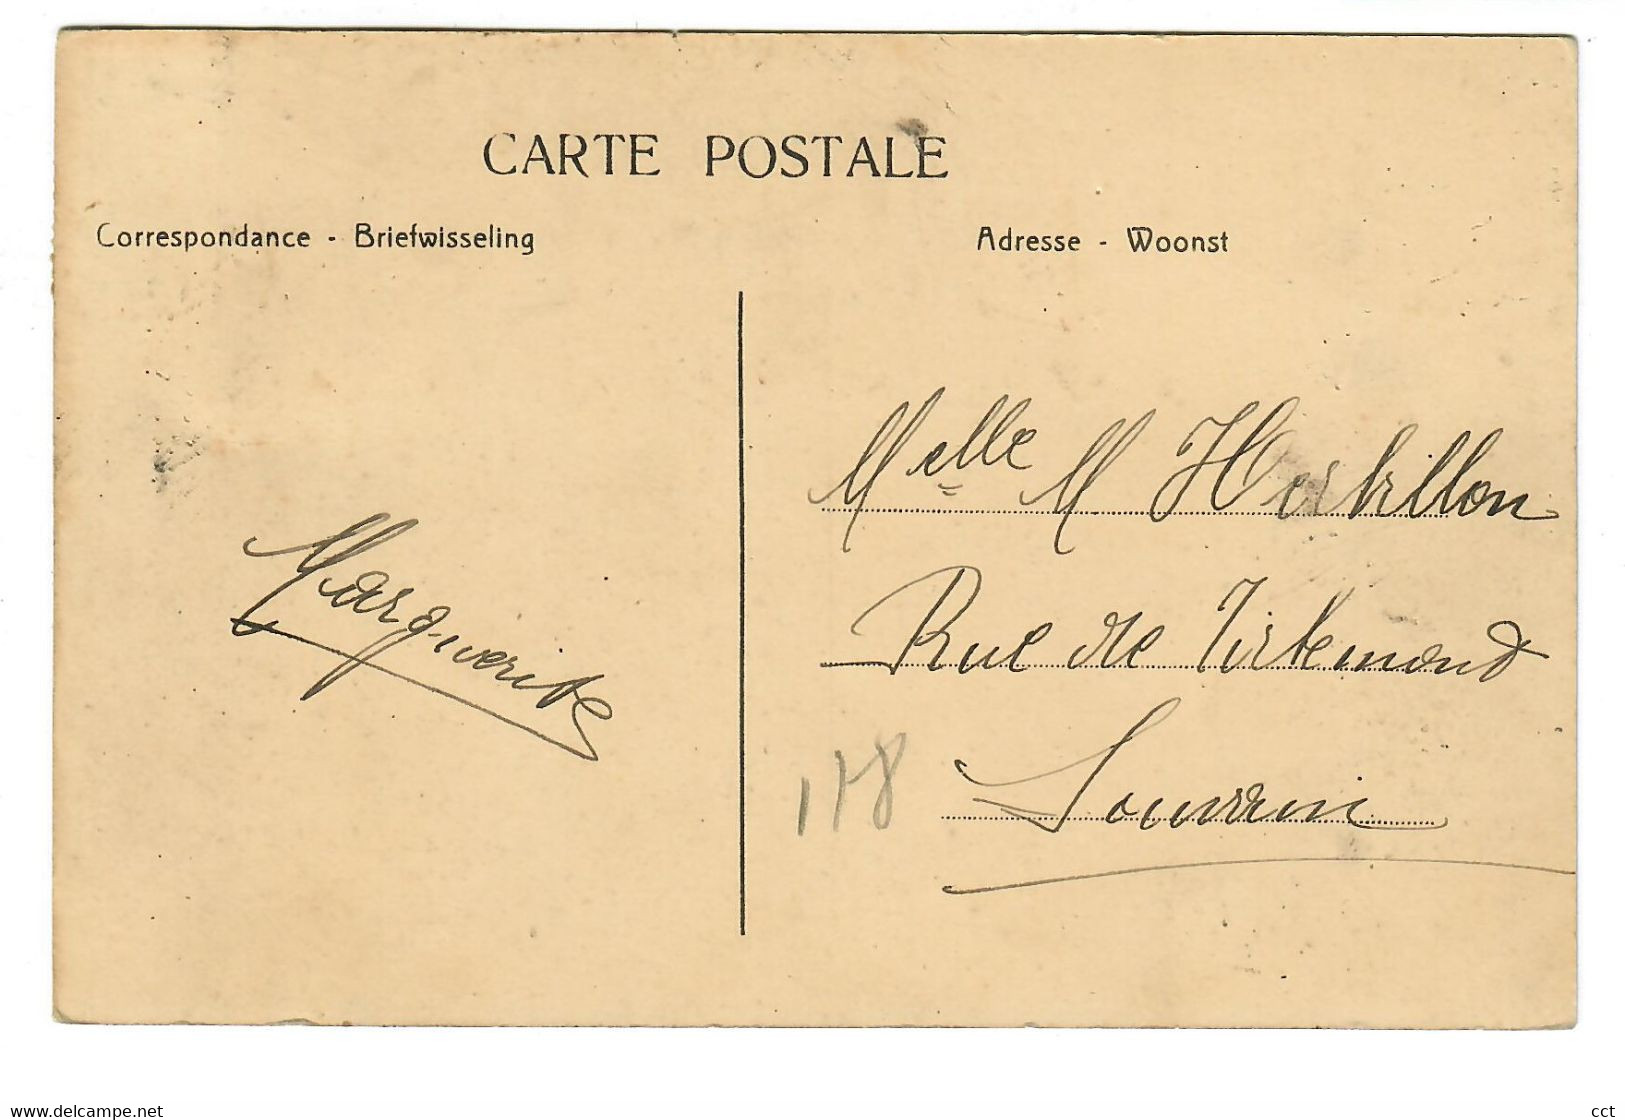 CARTE POSTALE
Correspondance - Briefwisseling
Adresse - Woonst
Melle M Horbillon
Rue de Tirlemond
Louvain
118
Marguerite
www.delcampe.net
cct